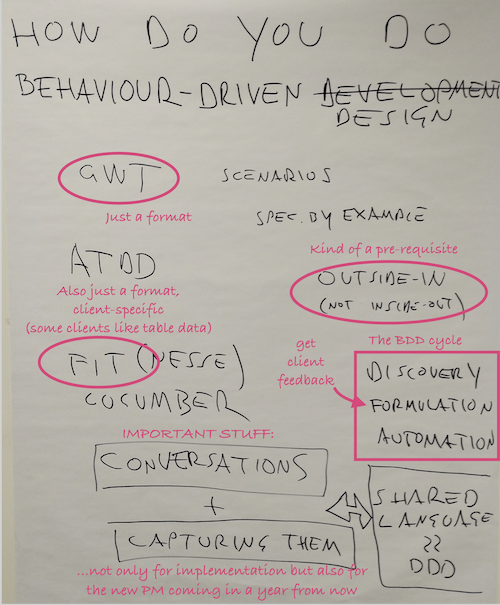 HOW DO YOU DO
BEHAVIOUR-DRIVEN DEVELOPMENT
DESIGN
GWT
Just a format
SCENARIOS
SPEC. BY EXAMPLE
ATDD
Also just a format,
client-specific
(some clients like table data)
Kind of a pre-requisite
OUTSIDE-IN
(NOT INSIDE-OUT)
FIT(NESSE)
CUCUMBER
The BDD cycle
get
client
feedback
DISCOVERY
FORMULATION
AUTOMATION
IMPORTANT STUFF:
CONVERSATIONS
+
CAPTURING THEM
...not only for implementation but also for
the new PM coming in a year from now
SHARED
LANGUAGE
??
DDD